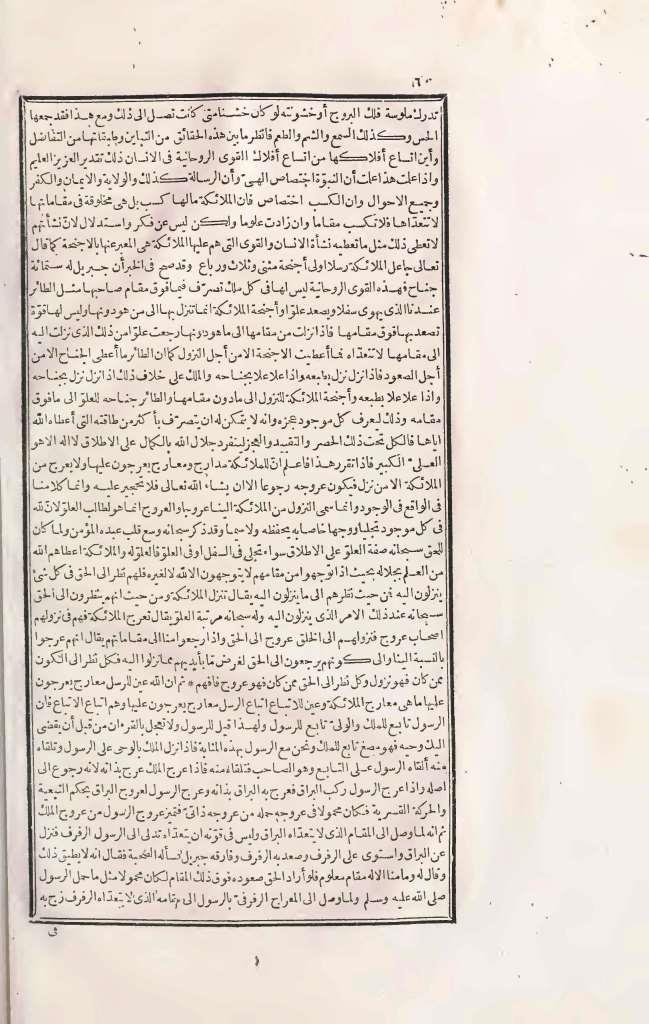 ٦٠
تدرك ملوسة فلك البروج أو خشونته لو كان خشنا متى كانت تصل الى ذلك ومع هذا فقد جمعها
الحس وكذلك السمع والشم والطعم فانظر ما بين هذه الحقائق من التباين وما بينها من التفاضل
وأين اتساع أفلاكها من اتساع أفلاك القوى الروحانية فى الانسان ذلك تقدير العزيز العليم
واذا علمت هذا علمت أن النبوّة اختصاص الهىّ وأن الرسالة كذلك والولاية والايمان والكفر
وجميع الاحوال وان الكسب اختصاص فان الملائكة مالها كسب بل هى مخلوقة فى مقاماتها
لا تتعدّاها فلا تكسب مقاما وان زادت علوما ولكن ليس عن فكر واستدلال لان نشأتهم
لا تعطى ذلك مثل ما تعطيه نشأة الانسان والقوى التى هم عليها الملائكة هى المعبر عنها بالاجنحة كما قال
تعالى جاعل الملائكة رسلا اولى أجنحة مثنى وثلاث ورباع وقد صح فى الخبر أن جبريل له ستمائة
جناح فهذه القوى الروحانية ليس لها فى كل ملك تصرّف فيما فوق مقام صاحبها مثل الطائر
عندنا الذى يهوى سفلا ويصعد علوّا وأجنحة الملائكة انما تنزل بها الى من هو دونها وليس لها قوّة
تصعد بها فوق مقامها فاذا نزلت من مقامها الى ما هو دونها رجعت علوّا من ذلك الذى نزلت اليه
الى مقامها لا تتعدّاه فما أعطيت الاجنحة الا من أجل النزول كما ان الطائر ما أعطى الجناح الا من
أجل الصعود فاذا نزل نزل بطبعه واذا علا علا بجناحه والملك على خلاف ذلك اذا نزل نزل بجناحه
واذا علا علا بطبعه وأجنحة الملائكة للنزول الى ما دون مقامها والطائر جناحه للعلوّ الى ما فوق
مقامه وذلك ليعرف كل موجود عجزه وانه لا يتمكن له ان يتصرّف بأكثر من طاقته التى أعطاه الله
اياها فالكل تحت ذلك الحصر والتقييد والعجز لينفرد جلال الله بالكمال على الاطلاق لا اله الا هو
العلىّ الكبير فاذا تقرر هذا فاعلم انّ للملائكة مدارج ومعارج يعرجون عليها ولا يعرج من
الملائكة الا من نزل فيكون عروجه رجوعا الا ان يشاء الله تعالى فلا تحجير عليه وانما كلامنا
فى الواقع فى الوجود وانما سمى النزول من الملائكة الينا عروجا والعروج انما هو لطالب العلوّ لانّ لله
فى كل موجود تجليا ووجها خاصا به يحفظه ولا سيما وقد ذكر سبحانه وسع قلب عبده المؤمن ولما كان
للحق سبحانه صفة العلوّ على الاطلاق سواء تجلى فى السفل او فى العلوّ فالعلوّ له والملائكة اعطاهم الله
من العلم بجلاله بحيث اذا توّجهوا من مقامهم لا يتوجهون الا لله لا لغيره فلهم نظر الى الحق فى كل شئ
ينزلون اليه فمن حيث نظرهم الى ما ينزلون اليه يقال تنزل الملائكة ومن حيث انهم ينظرون الى الحق
سبحانه عند ذلك الامر الذى ينزلون اليه وله سبحانه مرتبة العلوّ يقال تعرج الملائكة فهم فى نزولهم
اصحاب عروج فنزولهم الى الخلق عروج الى الحق واذا رجعوا منا الى مقاماتهم يقال انهم عرجوا
بالنسبة الينا والى كونهم يرجعون الى الحق لعرض ما بأيديهم مما نزلوا اليه فكل نظر الى الكون
ممن كان فهو نزول وكل نظر الى الحق ممن كان فهو عروج فافهم * ثم ان الله عين للرسل معارج يعرجون
عليها ما هى معارج الملائكة وعين للاتباع اتباع الرسل معارج يعرجون عليها وهم اتباع الاتباع فان
الرسول تابع للملك والولىّ تابع للرسول ولهذا قيل للرسول ولا تعجل بالقرءان من قبل أن يقضى
اليك وحيه فهو مصغ تابع للملك ونحن مع الرسول بهذه المثابة فاذا نزل الملك بالوحى على الرسول وتلقاه
منه ألقاه الرسول على التابع وهو الصاحب فتلقاه منه فاذا عرج الملك عرج بذاته لانه رجوع الى
اصله واذا عرج الرسول ركب البراق فعرج به البراق بذاته وعرج الرسول لعروج البراق بحكم التبعية
والحركة القسرية فكان محمولا فى عروجه حمله من عروجه ذاتىّ فتميز عروج الرسول من عروج الملك
ثم انه لما وصل الى المقام الذى لا يتعدّاه البراق وليس فى قوّته ان يتعدّاه تدلى الى الرسول الرفرف فنزل
عن البراق واستوى على الرفرف وصعد به الرفرف وفارقه جبريل فسأله الصحبة فقال انه لا يطيق ذلك
وقال له وما منا الا له مقام معلوم فلو أراد الحق صعوده فوق ذلك المقام لكان محمولا مثل ما حمل الرسول
صلى الله عليه وسلم ولما وصل الى المعراج الرفرفىّ بالرسول الى مقامه الذى لا يتعدّاه الرفرف زج به
فى